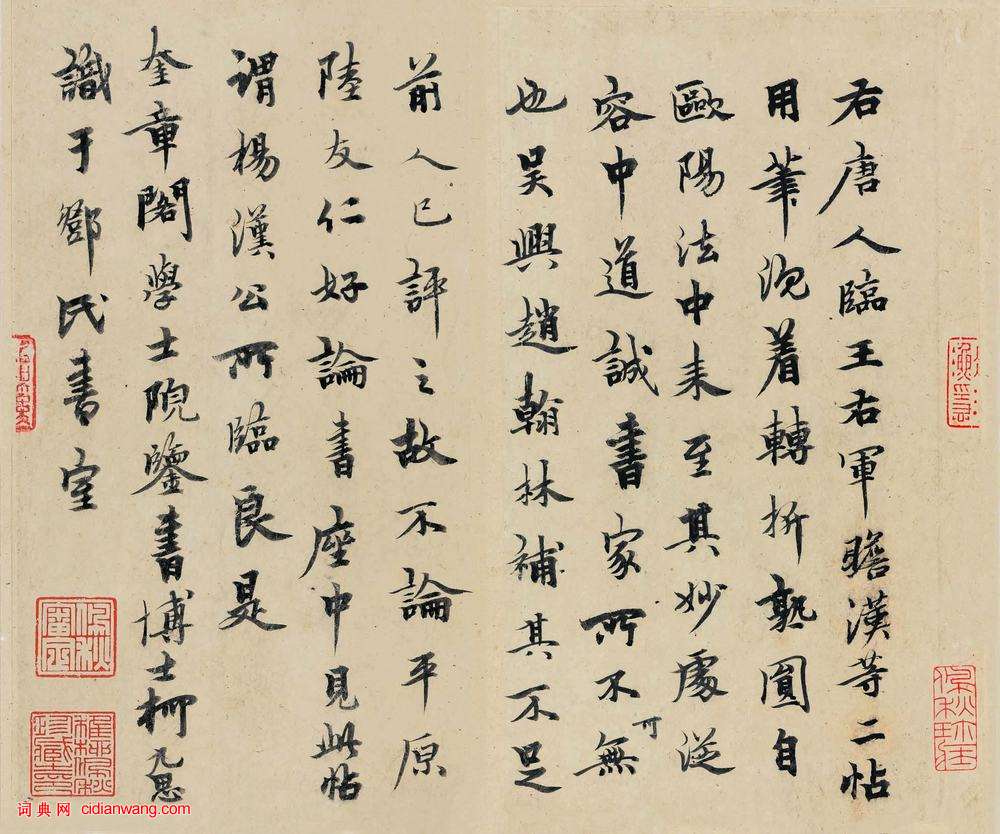 右唐人臨王右軍瞻漢等二帖
用筆沉着轉折熟圓自
歐陽法中来至其妙處從
容中道誠書家所不可無
也吳興趙翰林補其不足
前人已評之故不論平原
陸友仁好論書座中見此帖
謂楊漢公所臨良是
奎章閣學士院鑒書博士柯九思
識于鄧氏書室
词典网 cidianwang.com